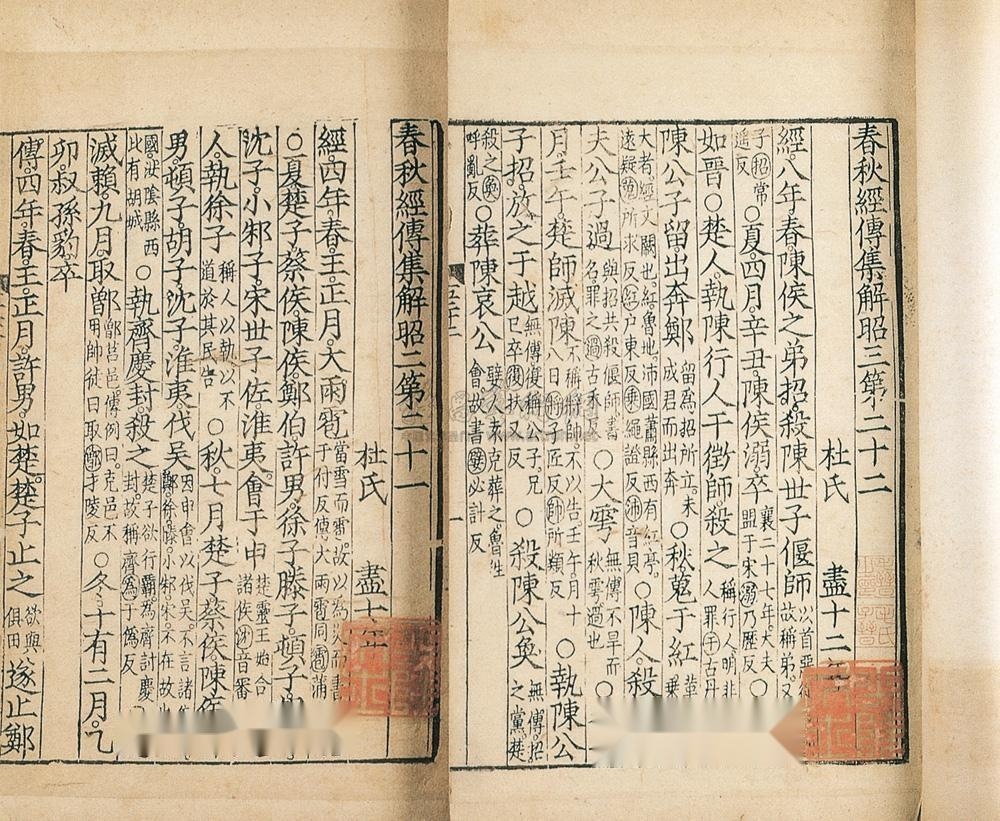 春秋經傳集解昭三第二十二
杜氏 盡十二
經八年春陳侯之弟招殺陳世子偃師以首惡從故稱弟又
子招常遥反○夏四月辛丑陳侯溺卒襄二十七年大夫盟于宋溺乃歷反○
如晉○楚人執陳行人干徵師殺之稱行人明非人罪干古丹
陳公子留出奔鄭留為招所立未成君而出奔○秋蒐于紅革車
大者經文闕也紅魯地沛國蕭縣西有紅亭遠疑蒐所求反紅户東反乗繩證反沛音貝○陳人殺
夫公子過與招共殺偃師書名罪之過古禾反○大雩無傳不旱而秋雩過也○
月壬午楚師滅陳不稱將帥不以告壬午月十八日將子匠反帥所類反○執陳公
子招放之于越無傳復稱公子兄已卒復扶又反○殺陳公奐無傳招之黨楚
殺之奐呼亂反○葬陳哀公嬖人袁克葬之魯往會故書嬖必計反
春秋經傳集解昭二第二十一
杜氏 盡七年
經四年春王正月大雨雹當雪而雹故以為災而書于付反傳大雨雹同雹蒲
○夏楚子蔡侯陳侯鄭伯許男徐子滕子頓子
沈子小邾子宋世子佐淮夷會于申楚靈王始合諸侯沈音審
人執徐子稱人以執以不道於其民告○秋七月楚子蔡侯陳侯
男頓子胡子沈子淮夷伐吳因申會以伐吳不言諸侯鄭徐滕小邾宋不在故也
國汝陰縣西比有胡城○執齊慶封殺之楚子欲行霸為齊討慶封故稱齊為于偽反
滅賴九月取鄫鄫莒邑傳例曰克邑不用師徒曰取鄫才陵反○冬十有二月乙
卯叔孫豹卒
傳四年春王正月許男如楚楚子止之欲與俱田遂止鄭